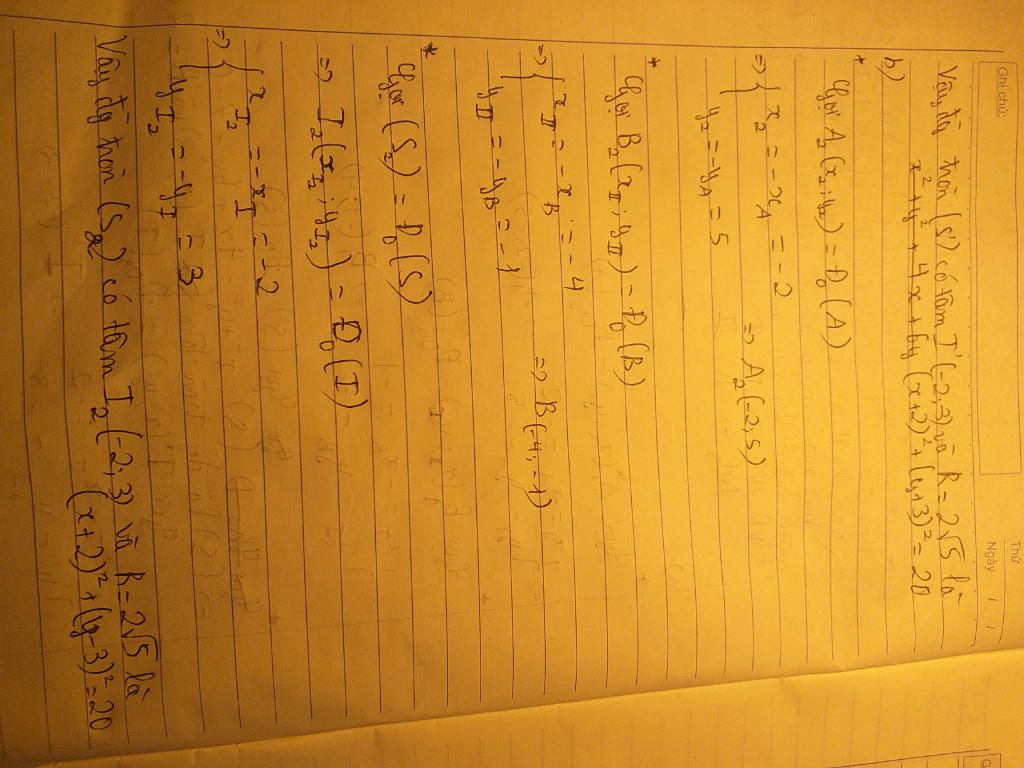 Ghi chú:
Thứ
Ngày / /
Vậy đg tròn (S') có tâm I'(-2,-3) và R = 2√5 là
x² + y² + 4x + 6y (x+2)² + (y+3)² = 20
b)
* Gọi A₂(x₂; y₂) = Đ₀(A)
=> { x₂ = -x_A = -2
y₂ = -y_A = 5
=> A₂(-2; 5)
* Gọi B₂(x_II; y_II) = Đ₀(B)
=> { x_II = -x_B = -4
y_II = -y_B = -1
=> B(-4; -1)
* Gọi (S₂) = Đ₀(S)
=> I₂(x_I₂; y_I₂) = Đ₀(I)
=> { x_I₂ = -x_I = -2
y_I₂ = -y_I = 3
Vậy đg tròn (S₂) có tâm I₂(-2; 3) và R = 2√5 là
(x+2)² + (y-3)² = 20